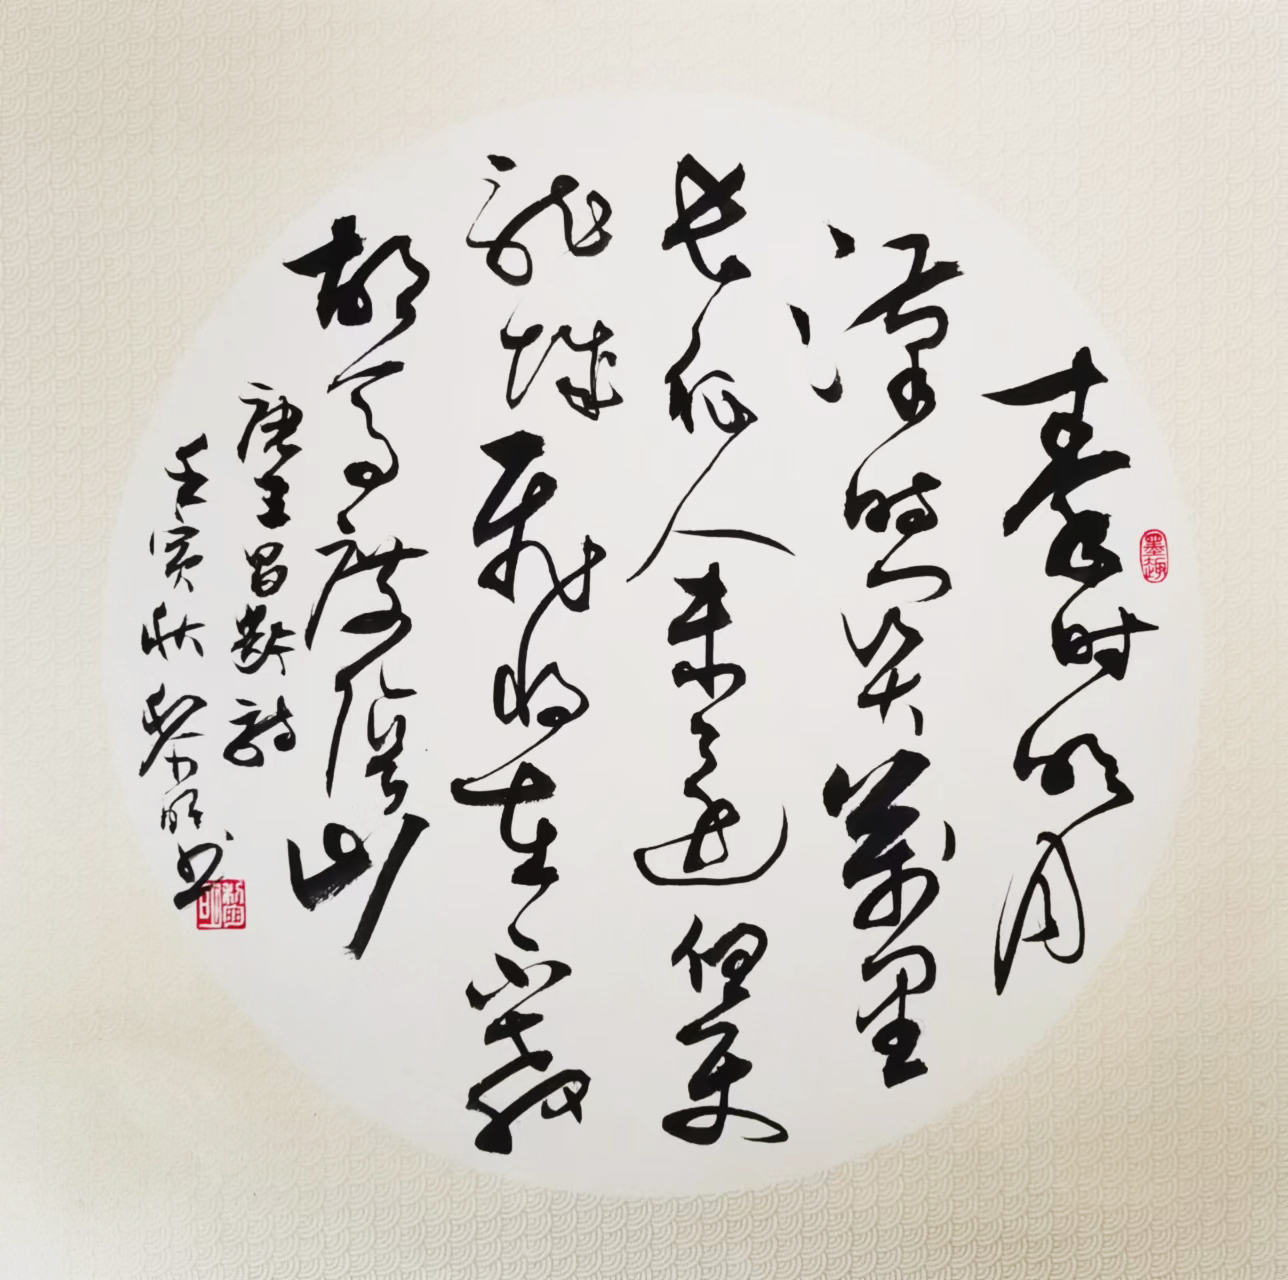 秦时明月
漢时关萬里
长征人未还但使
龙城飞将在不教
胡马度阴山
唐王昌龄诗
壬寅秋黎明书
黎明